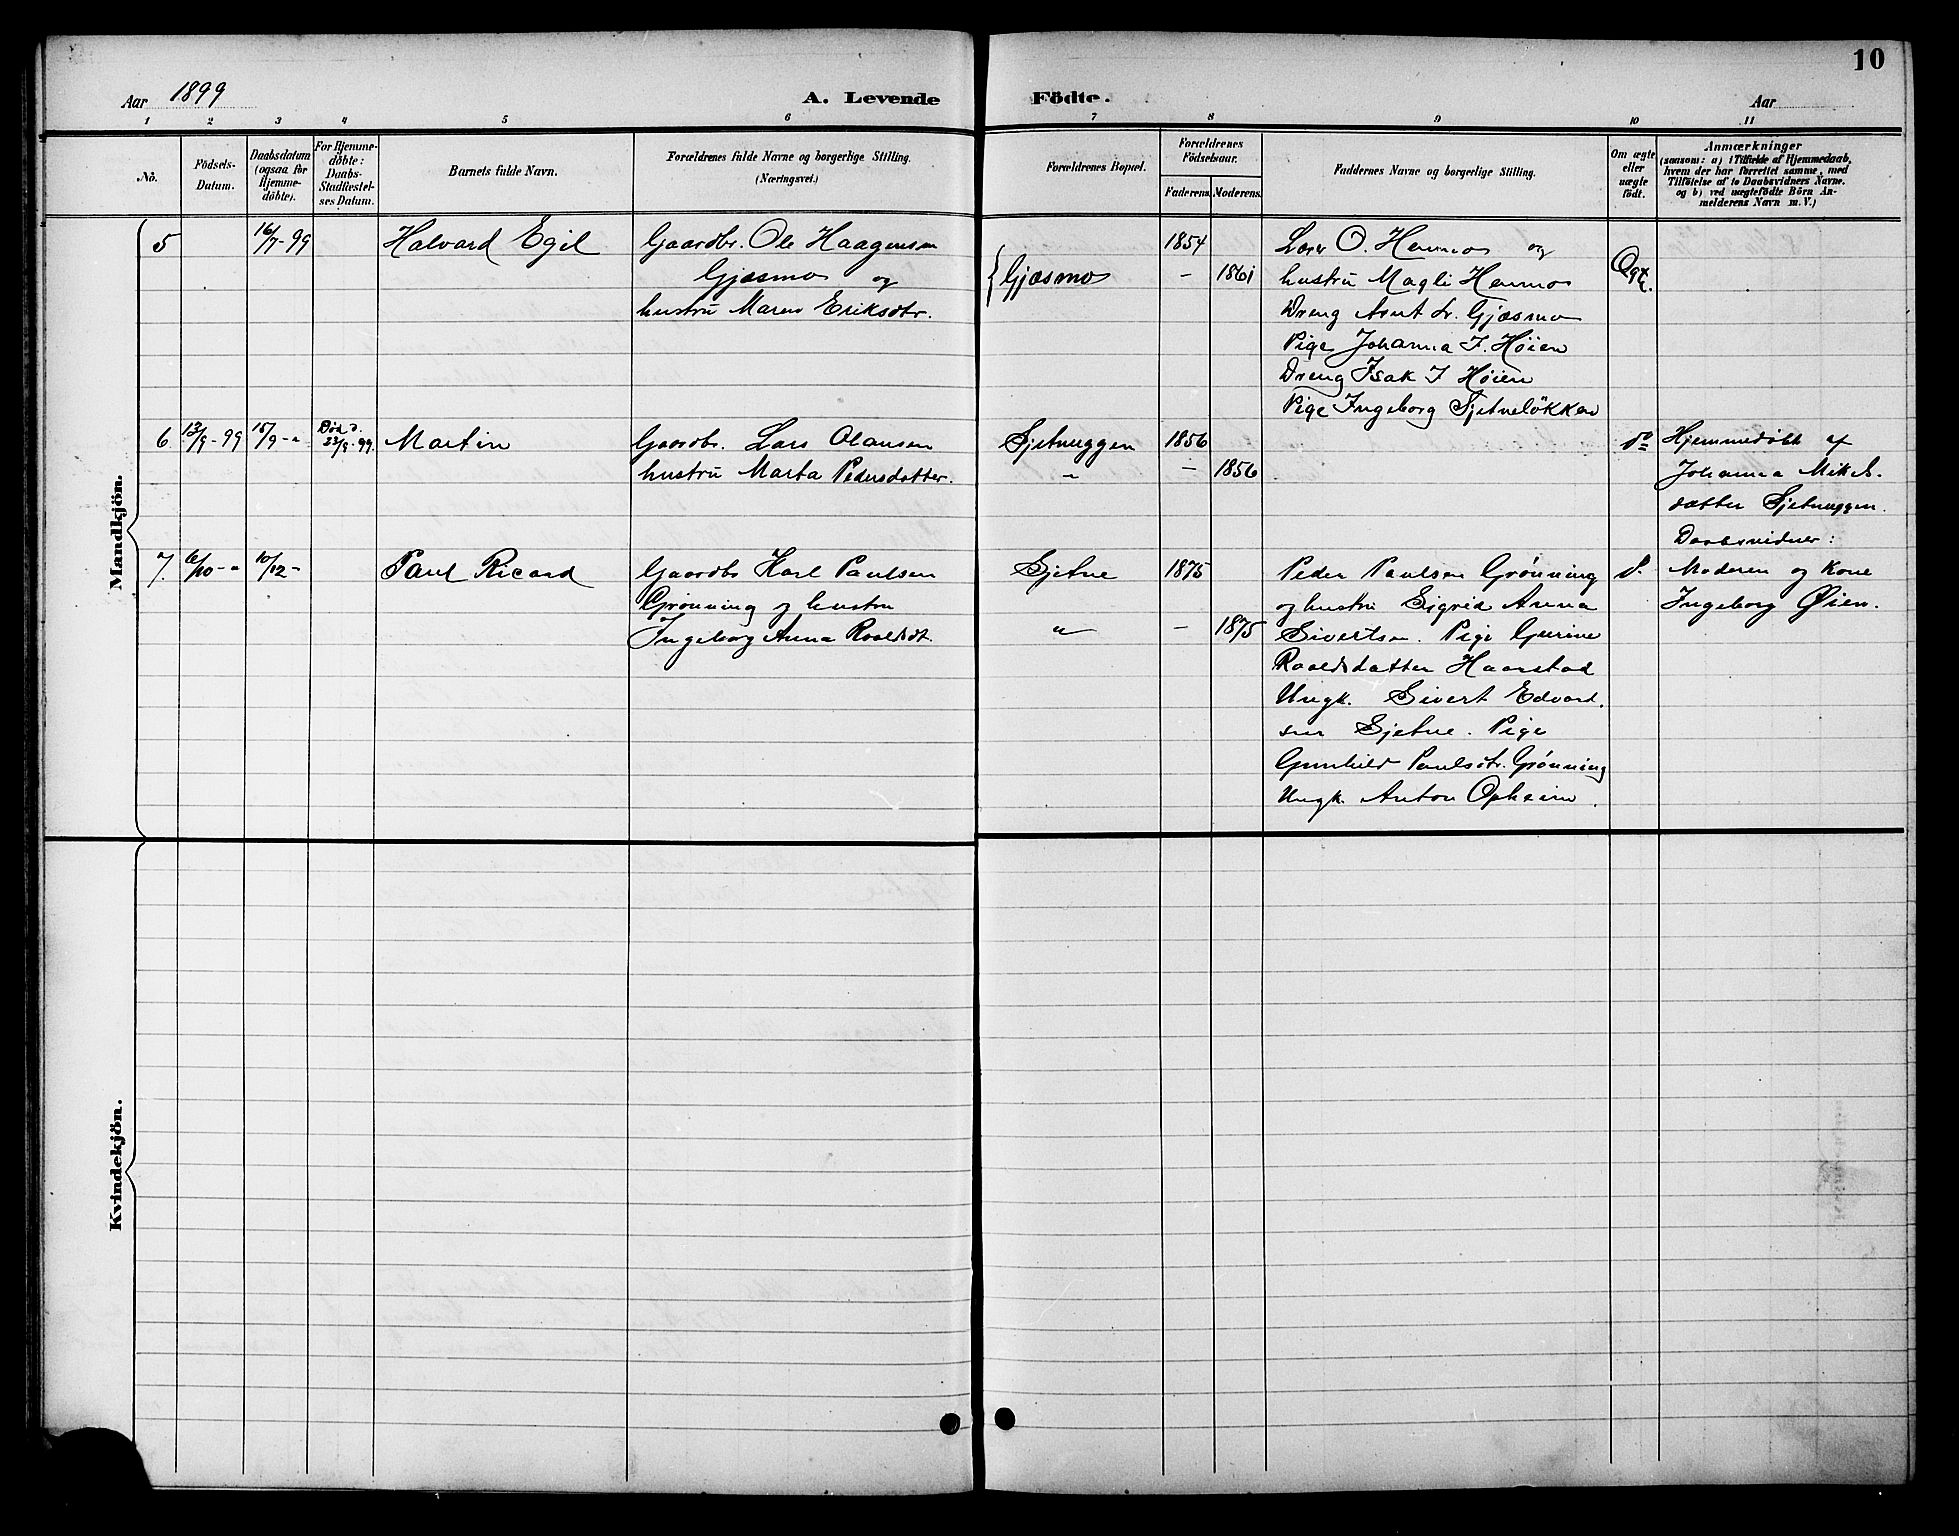 10
Aar 1899 A. Levende Födte. Aar
1 2 3 4 5 6 7 8 9 10 11
No.
Födsels-Datum.
Daabsdatum (ogsaa for Hjemme-döbte).
For Hjemme-döbte: Daabs-Stadfæstel-ses Datum.
Barnets fulde Navn.
Forældrenes fulde Navne og borgerlige Stilling.
(Næringsvei.)
Forældrenes Bopæl.
Forældrenes Födselsaar.
Faderens. Moderens.
Faddernes Navne og borgerlige Stilling.
Om ægte eller uægte födt.
Anmærkninger
(saasom: a) i Tilfælde af Hjemmedaab, hvem der har forrettet samme, med Tilföielse af to Daabsvidners Navne, og b) ved uægtefödte Börn An-melderens Navn m. V.)
Mandkjön.
5 16/7-99 Halvard Egil Gaardbr. Ole Haagensen 1854 O. Hemmo og
Gjæsmo og Gjæsmo - 1861 hustru Magli Hemmo Ægt.
hustru Maren Eriksdtr. Dreng Arnt Gjæsmo
Pige Johanna I. Höien
Dreng Isak I Höien
Pige Ingeborg Sjetnelökken
6 13/9-99 15/9-" Död d. 22/9-99. Martin Gaardbr. Lars Olausen Sjetnuggen 1856 do Hjemmedöbt af
hustru Marta Pedersdatter. " - 1856 Johanna Mikels-
datter Sjetnuggen.
Daabsvidner:
7. 6/10-" 10/12- Paul Ricard Gaardbr Karl Paulsen Sjetne 1875 Peder Paulsen Grønning d. Moderen og Kone
Grønning og hustru og hustru Sigrid Anna Ingeborg Øien.
Ingeborg Anna Roaldsdt. " - 1875 Sivertsen. Pige Gurine
Roaldsdatter Haarstad
Ungk. Sivert Edvard-
sen Sjetne. Pige
Gunhild Paulsdtr. Grønning
Ungk. Anton Opheim.
Kvindekjön.